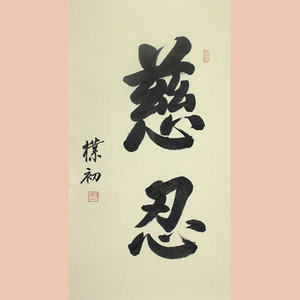 慈忍
樸初